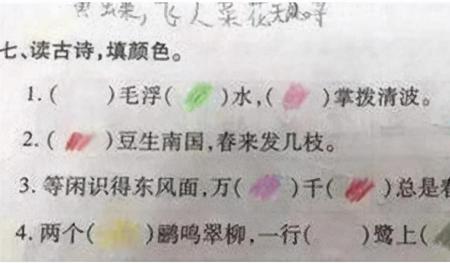 飞人菜花
七、读古诗,填颜色。
1.( )毛浮( )水,( )掌拨清波。
2.( )豆生南国,春来发几枝。
3.等闲识得东风面,万( )千( )总是春
4.两个( )鹂鸣翠柳,一行( )鹭上(